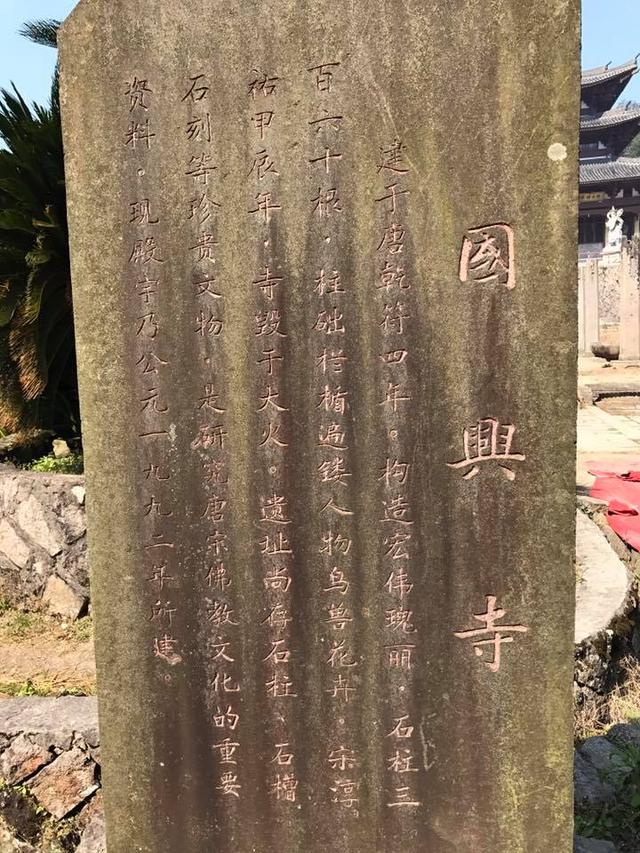 國興寺
建于唐乾符四年。构造宏伟瑰丽。石柱三
百六十根。柱础栏楯遍镂人物鸟兽花卉。宗淳
祐甲辰年。寺毁于大火。遗址尚存石柱、石槽
石刻等珍贵文物。是研究唐宗佛教文化的重要
资料。现殿宇乃公元一九九二年所建。